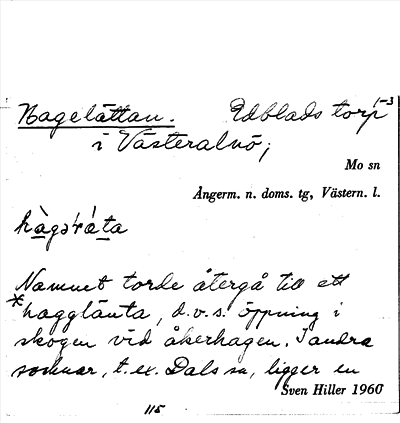 Hagelättan. Edblads torp 1-3
i Västeralnö;
Mo sn
Ångerm. n. doms. tg, Västern. l.
Namnet torde återgå till ett
*hagglänta, d.v.s. öppning i
skogen vid åkerhagen. I andra
socknar, t.ex. Dals sn, ligger en
Sven Hiller 1960
115